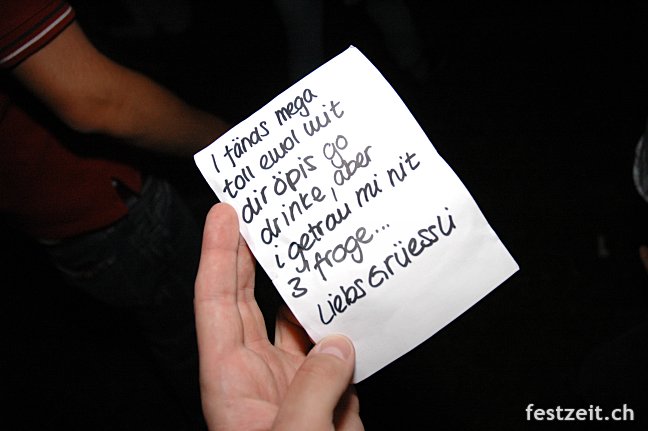 I tänds mega
toll emol mit
dir öpis go
drinke, aber
i getrau mi nit
z'froge...
Liebs Grüessli
festzeit.ch